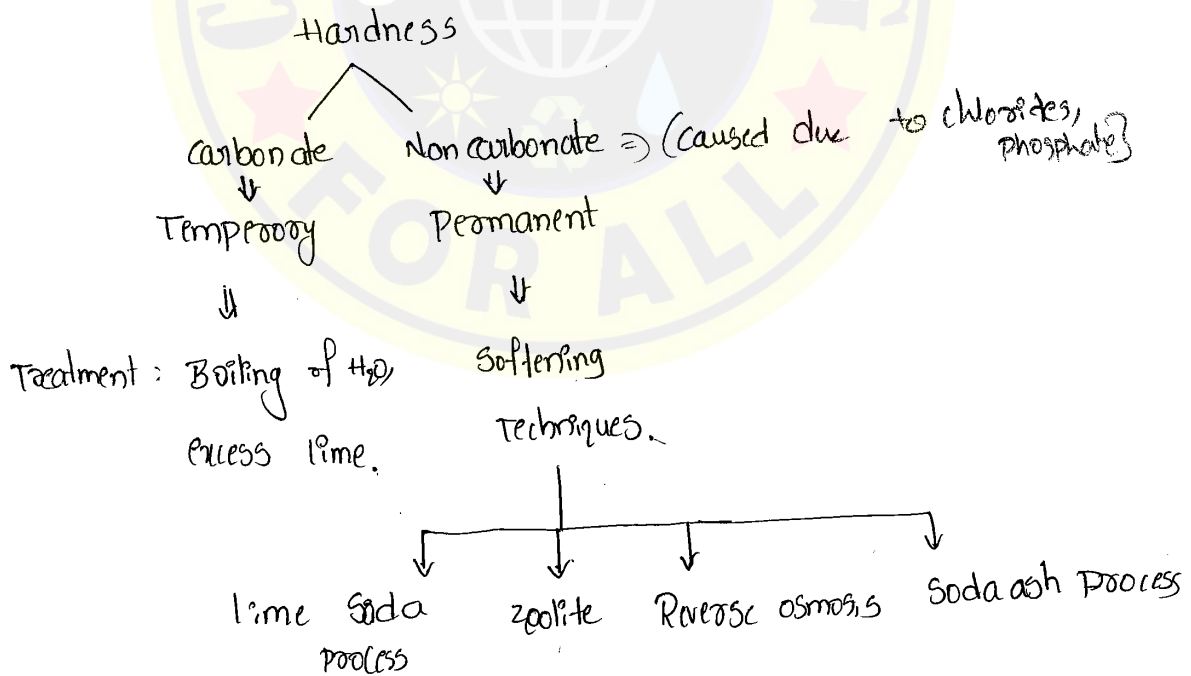 Hardness
carbonate
Non carbonate => (caused due to chlorides,
phosphate}
Temperory
Permanent
Treatment : Boiling of H2O,
excess lime.
Softening
Techniques.
lime Soda
process
zeolite
Reverse osmosis
Soda ash process
FOR ALL